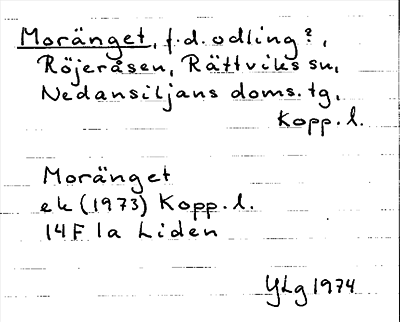 Moränget, f.d. odling?,
Röjeråsen, Rättviks sn,
Nedansiljans doms.tg,
Kopp.l.
Moränget
ek (1973) Kopp.l.
14F 1a Liden
YLg 1974